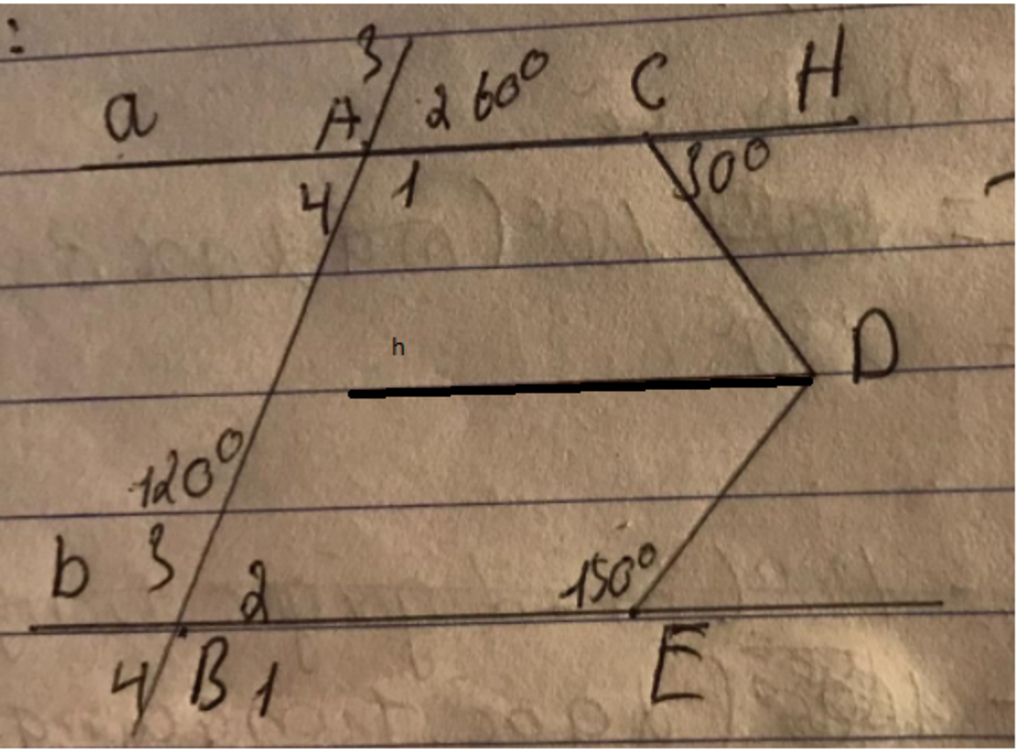 :
3
a A 2 60° C H
4 1 30°
h D
120°
b 3 2 150°
4 B 1 E